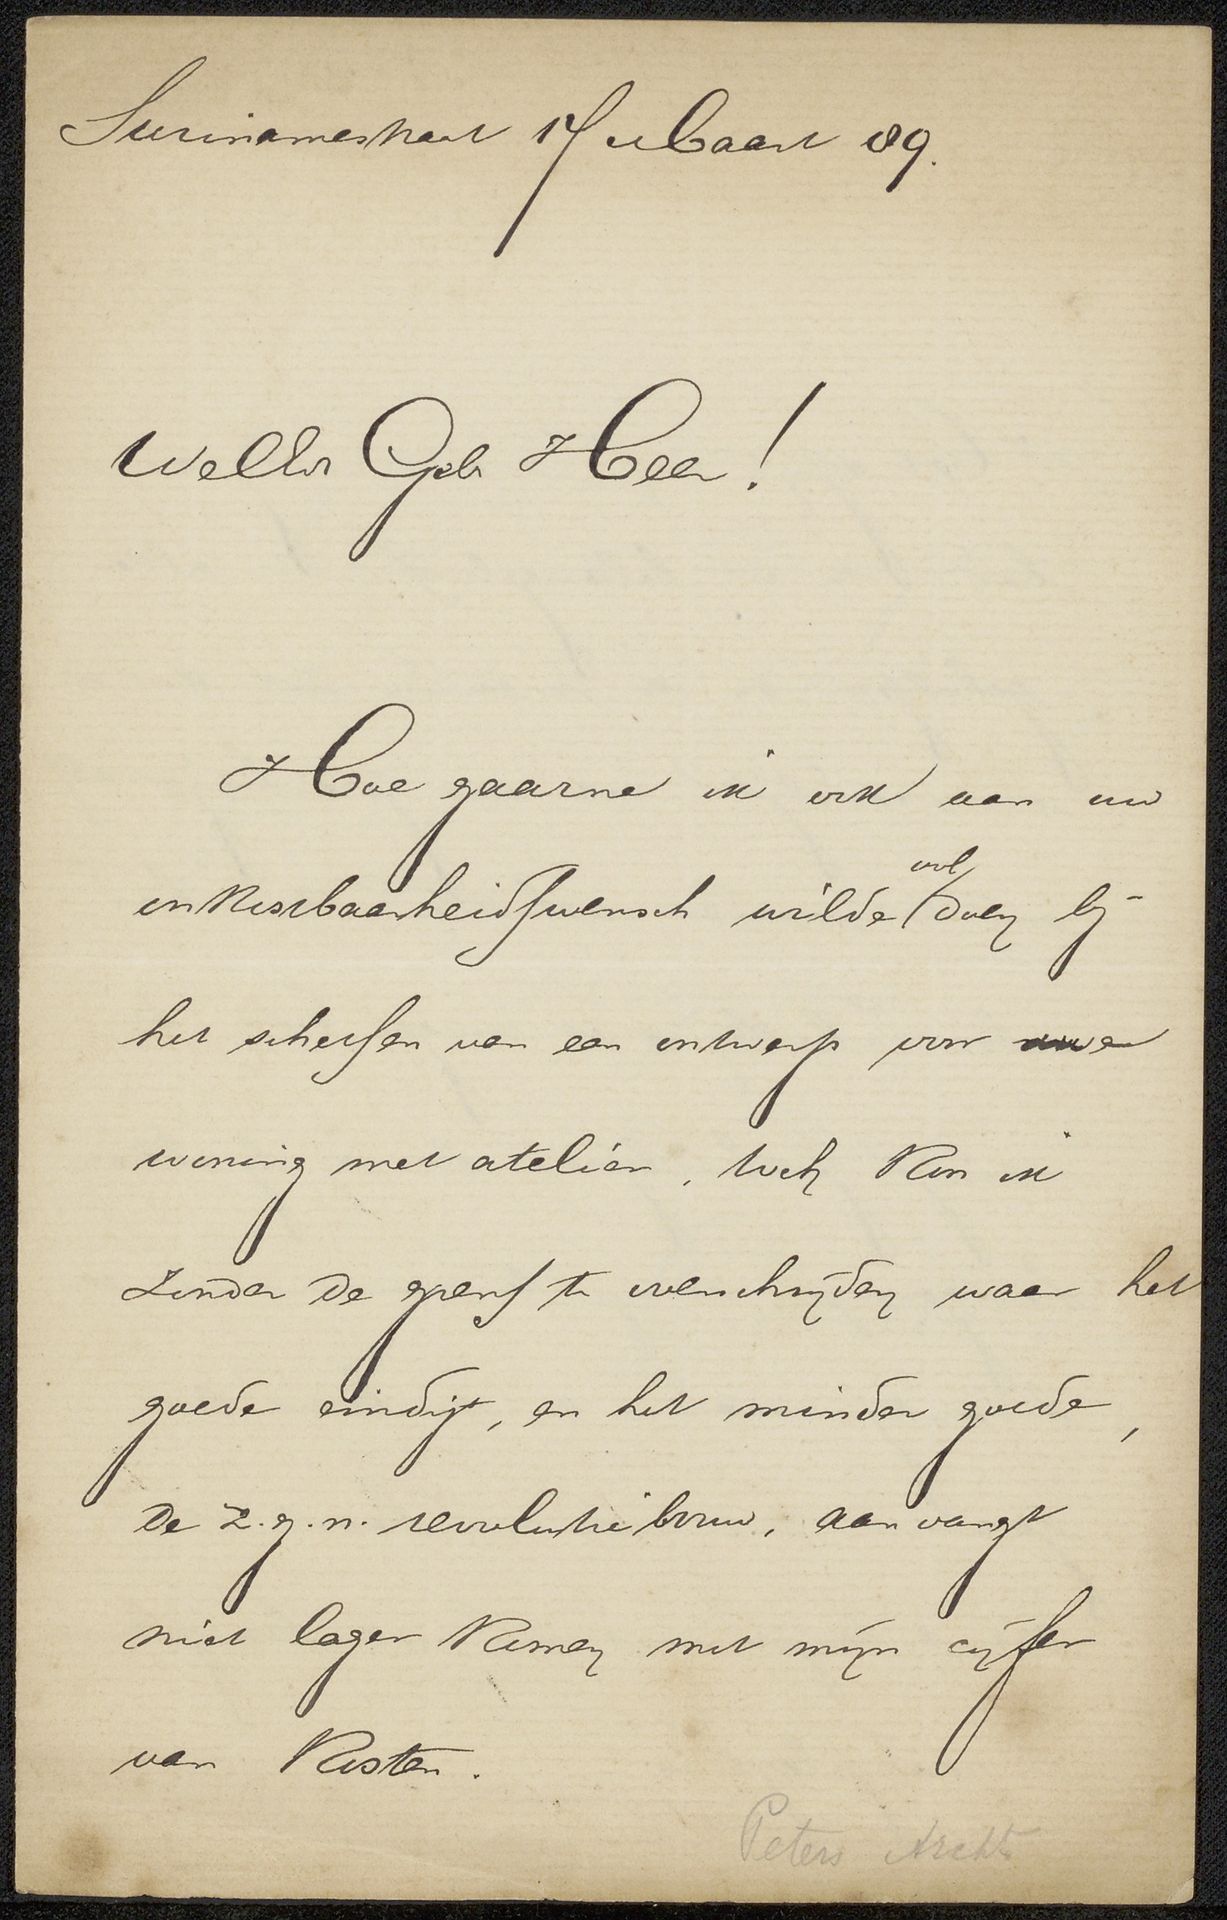 Surinamestraat 17 Maart 89.
WelEd Geb Heer!
Hoe gaarne ik ook aan uw
onkostbaarheidswensch wilde vol doen bij
het schetsen van een ontwerp voor uwe
woning met atelier, toch kon ik
zonder de grens te overschrijden waar het
goede eindigt, en het minder goede,
de z.g.n. revolutiebouw, aanvangt
niet lager komen met mijn cijfer
van kosten.
Peters Archt